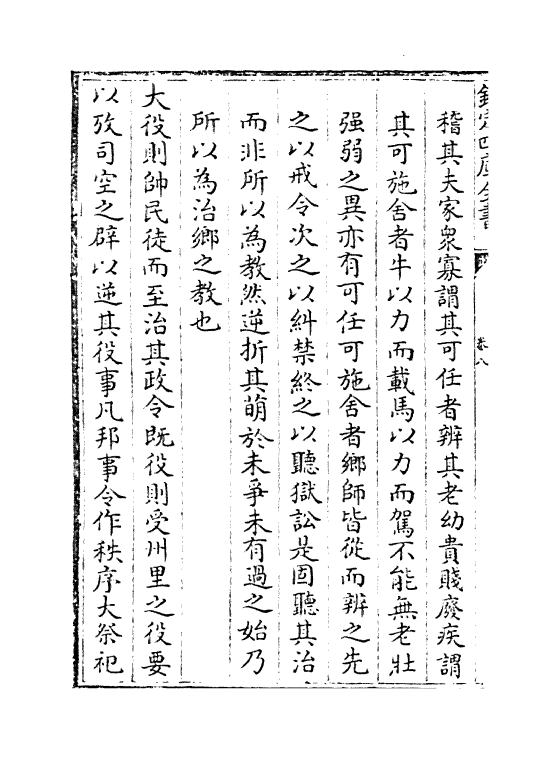 欽定四庫全書
卷八
稽其夫家衆寡謂其可任者辨其老幼貴賤廢疾謂
其可施舍者牛以力而載馬以力而駕不能無老壯
强弱之異亦有可任可施舍者鄉師皆從而辨之先
之以戒令次之以糾禁終之以聽獄訟是固聽其治
而非所以為教然逆折其萌於未爭未有過之始乃
所以為治鄉之教也
大役則帥民徒而至治其政令既役則受州里之役要
以攷司空之辟以逆其役事凡邦事令作秩序大祭祀